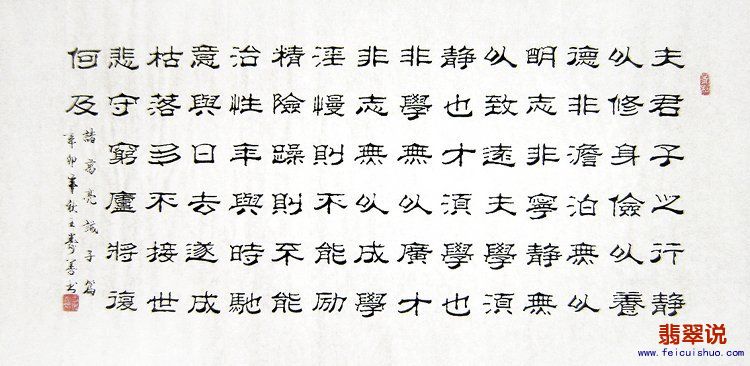 夫君子之行靜
以修身儉以養
德非澹泊無以
明志非寧靜無
以致遠夫學須
靜也才須學也
非學無以廣才
非志無以成學
淫慢則不能励
精險躁則不能
治性年與時馳
意與日去遂成
枯落多不接世
悲守窮廬將復
何及
諸葛亮誡子篇
辛卯年秋王善书
翡翠说
www.feicuishuo.com